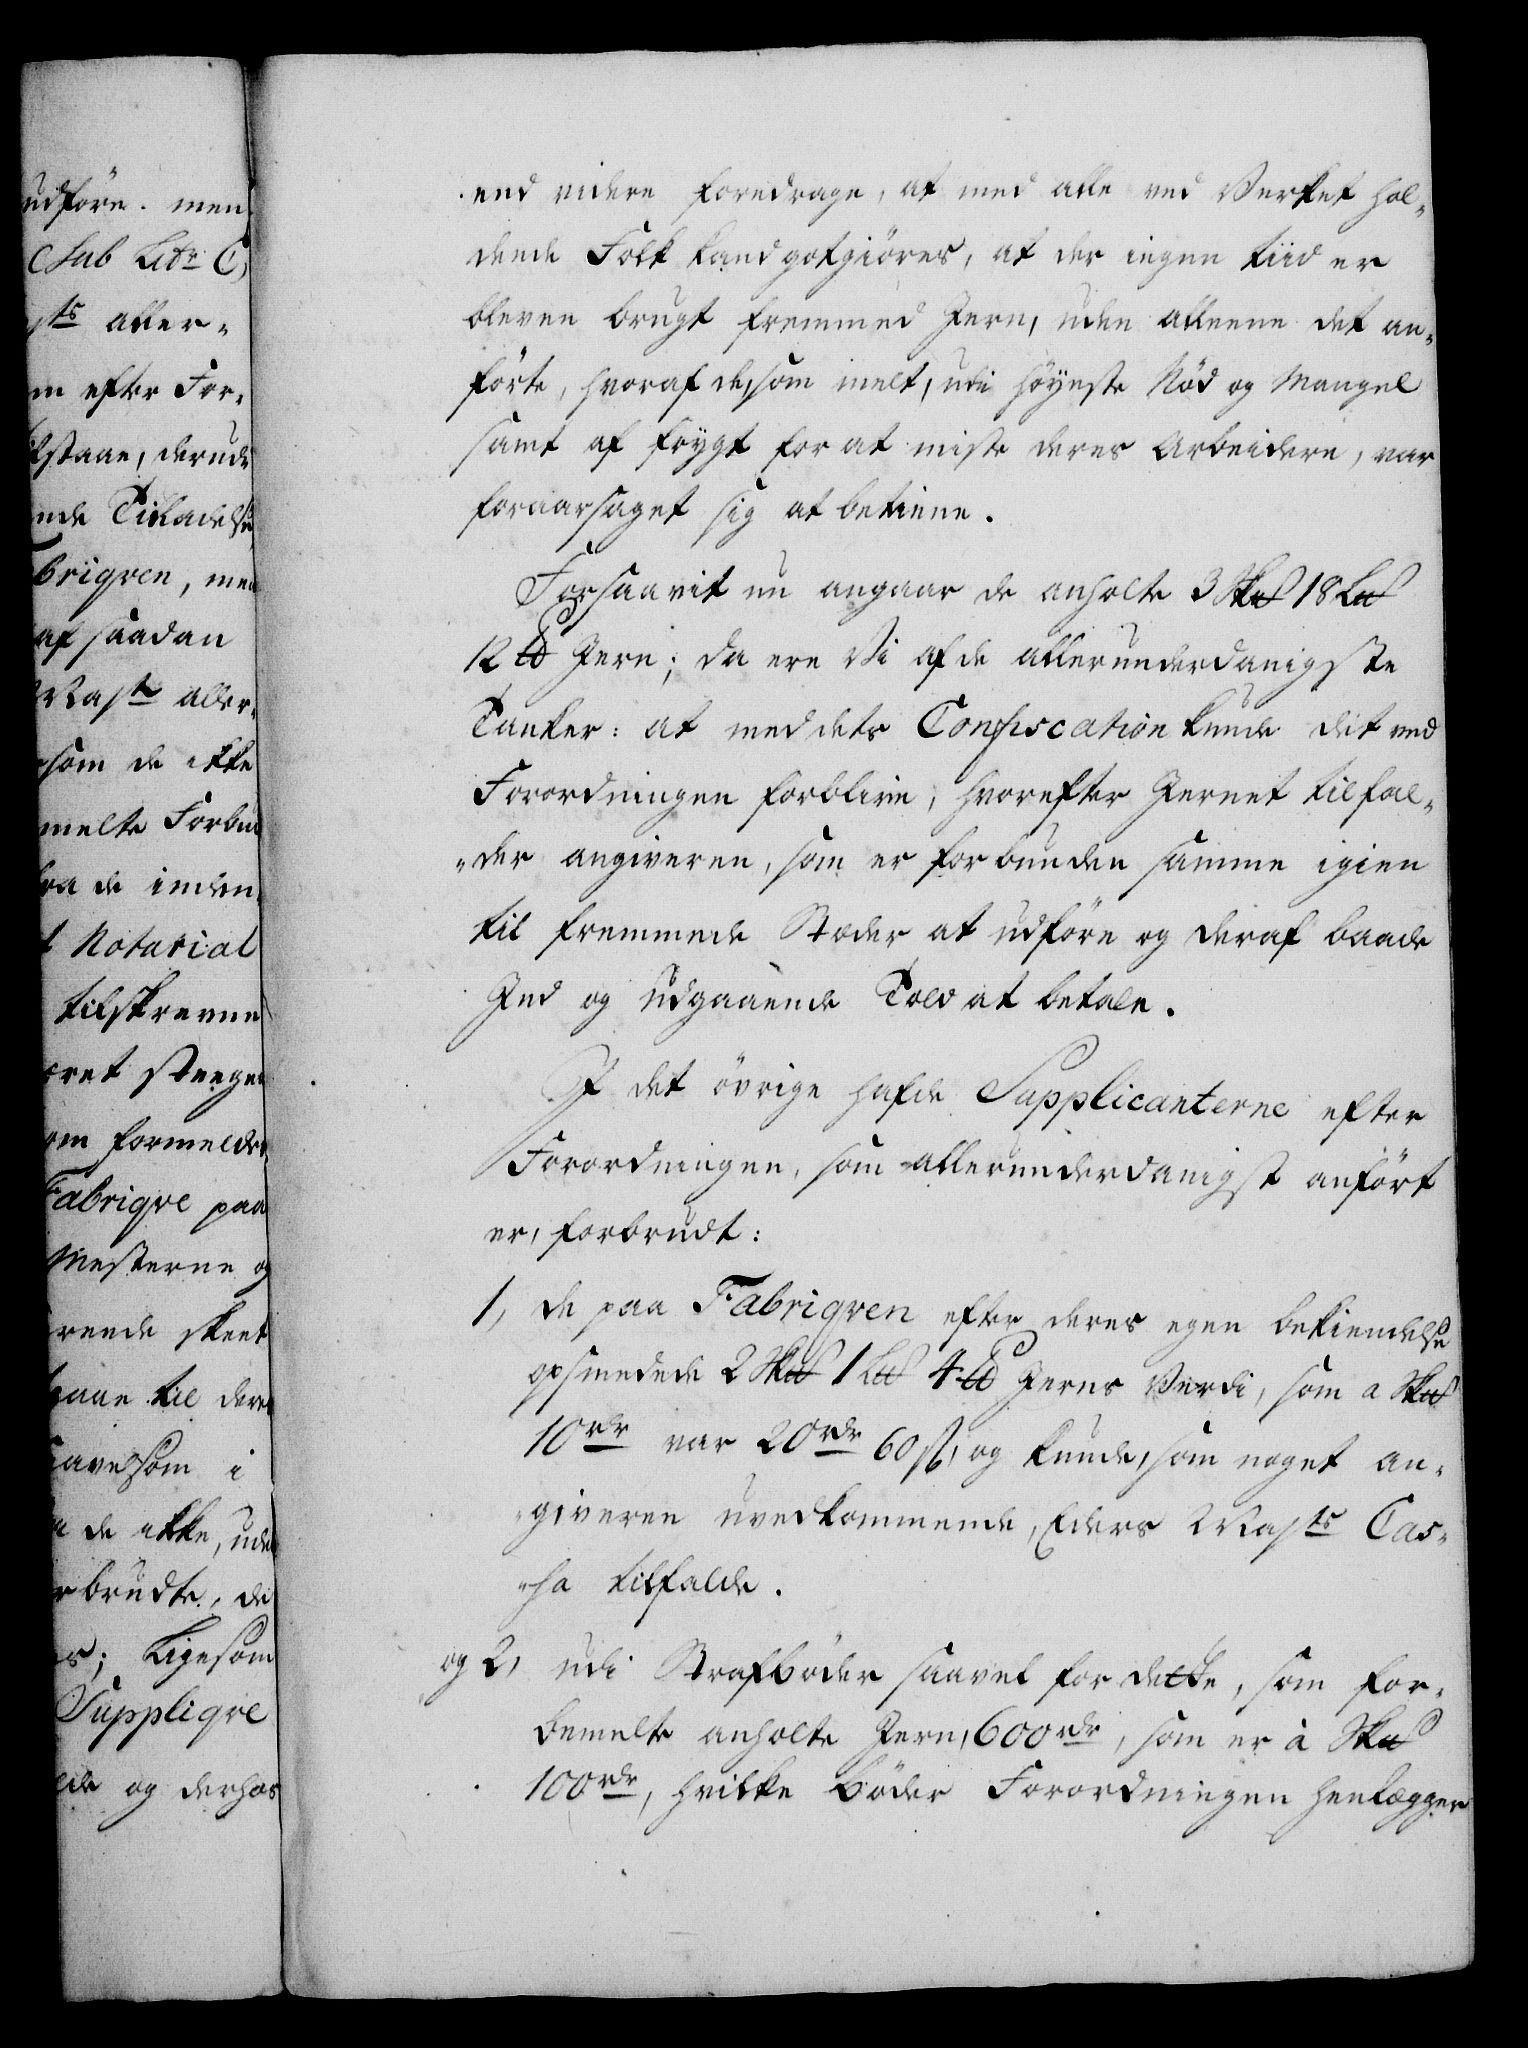 udföre. men
(Sub Litr: C)
ts aller-
efter For-
staae, derudi
nde Tilladelse
brigven, men
af saadan
Mayts aller-
som de ikke
melte Forbud
fra de inden-
t Notarial
tilskrevne
eret
om formelder
Fabriqve paa
Mesterne og
rende skeet
til deres
som i
de ikke, uden
rbrudte, de
Ligesom
Suppliqve
og derhos
end videre foredrage, at med alle ved Verket hol-
dende Folk kand gotgiöres, at der ingen tiid er
bleven brugt fremmed Jern, uden alleene det an-
förte, hvoraf de, som melt, udi höyeste Nöd og Mangel
samt af frygt for at miste deres Arbeidere, var
foraarsaget sig at betiene.
Forsaavit nu angaar de anholte 3 Sk℔ 18 L℔
12 ℔ Jern; da ere Vi af de allerunderdanigste
Tanker: at med dets Confiscation kunde det ved
Forordningen forblive, hvorefter Jernet tilfal-
der angiveren, som er forbunden samme igien
til fremmede Stæder at udföre og deraf baade
Ind og udgaaende Told at betale.
I det övrige hafde Supplicanterne efter
Forordningen, som allerunderdanigst anfört
er, forbrudt:
1, de paa Fabriqven efter deres egen bekiendelse
opsmedede 2 Sk℔ 1 L℔ 4 ℔ Jerns Verdi, som a Sk℔
10 rdr var 20 rdr 60 ß, og kunde, som noget an-
giveren uvedkommende, Eders Mayts Cas-
sa tilfalde.
og 2, udi Strafböder saavel for dette, som for-
bemelte anholte Jern, 600 rdr, som er à Sk℔
100 rdr, hvilke Böder Forordningen henlægger